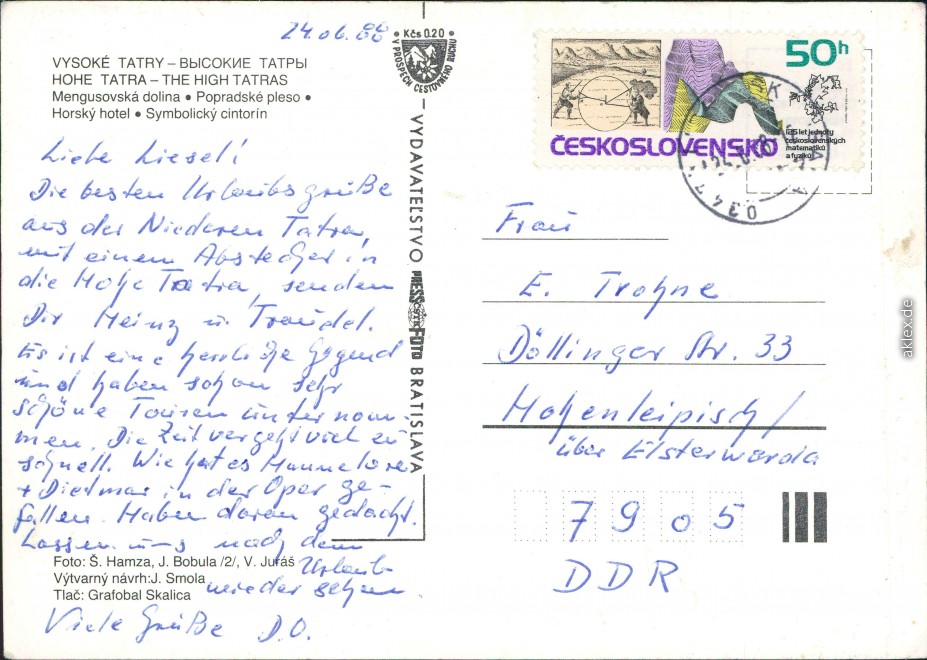 24.06.88
Kčs 0.20
V PROSPECH CESTOVNÉHO RUCHU
VYSOKÉ TATRY – ВЫСОКИЕ ТАТРЫ
HOHE TATRA – THE HIGH TATRAS
Mengusovská dolina • Popradské pleso •
Horský hotel • Symbolický cintorín
Liebe Liesel!
Die besten Urlaubsgrüße
aus der Niederen Tatra,
mit einem Abstecher in
die Hohe Tatra, senden
Dir Heinz u. Traudel.
Es ist eine herrliche Gegend
und haben schon sehr
schöne Touren unternom-
men. Die Zeit vergeht viel zu
schnell. Wie hat es Hannelore
+ Dietmar in der Oper ge-
fallen. Haben daran gedacht.
Lassen uns nach dem
Urlaub
wieder sehen.
Viele Grüße D.O.
Foto: Š. Hamza, J. Bobula /2/, V. Juráš
Výtvarný návrh: J. Smola
Tlač: Grafobal Skalica
VYDAVATEĽSTVO PRESSFOTO BRATISLAVA
ČSTK
50h
125 let jednoty
československých
matematiků
a fyziků
ČESKOSLOVENSKO
034 7
Frau
E. Trohne
Döllinger Str. 33
Hohenleipisch /
über Elsterwerda
7905
DDR
aklex.de